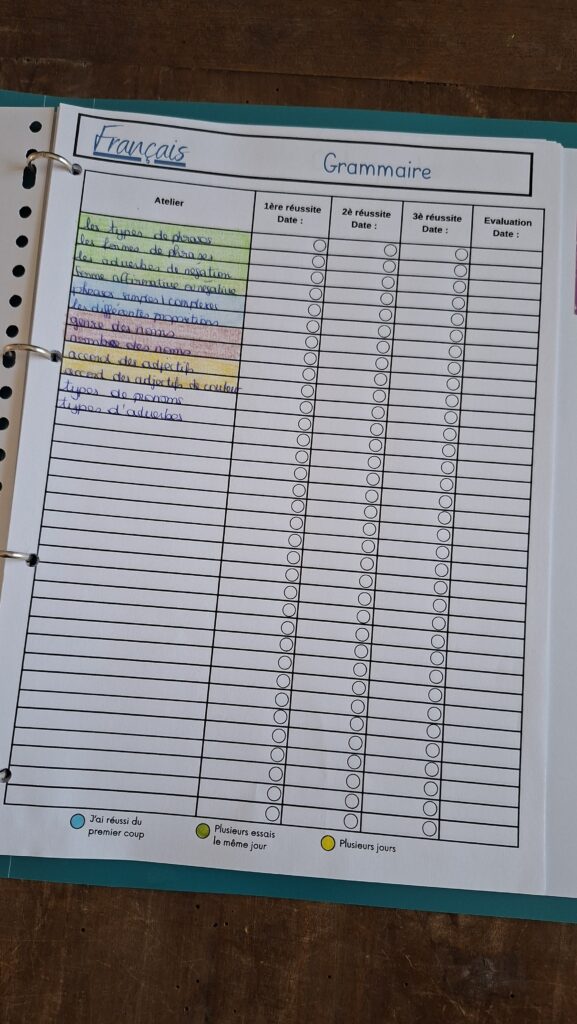 Français
Grammaire
Atelier
1ère réussite
Date :
2è réussite
Date :
3è réussite
Date :
Evaluation
Date :
les types de phrase
les formes de phrases
les adverbes de négation
forme affirmative négative
phrases simples / complexes
les différentes propositions
genre des noms
nombre des noms
accord des adjectifs
accord des adjectifs de couleur
types de pronoms
types d'adverbes
J'ai réussi du
premier coup
Plusieurs essais
le même jour
Plusieurs jours